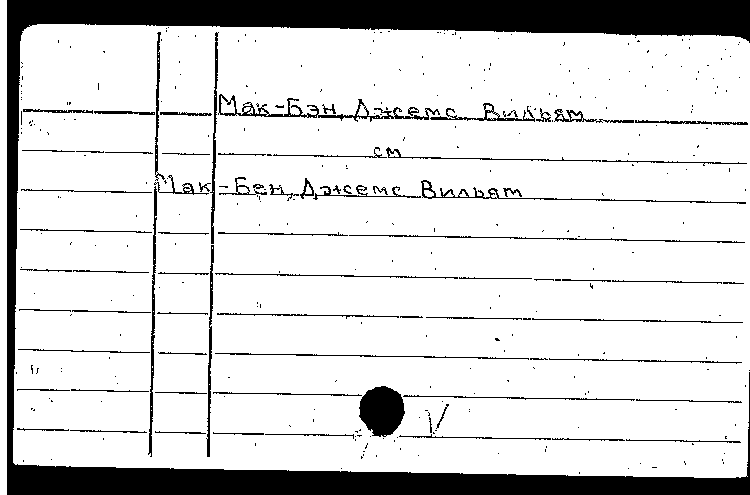 Мак-Бэн, Джемс Вильям
см
Мак-Бен, Джемс Вильям
V